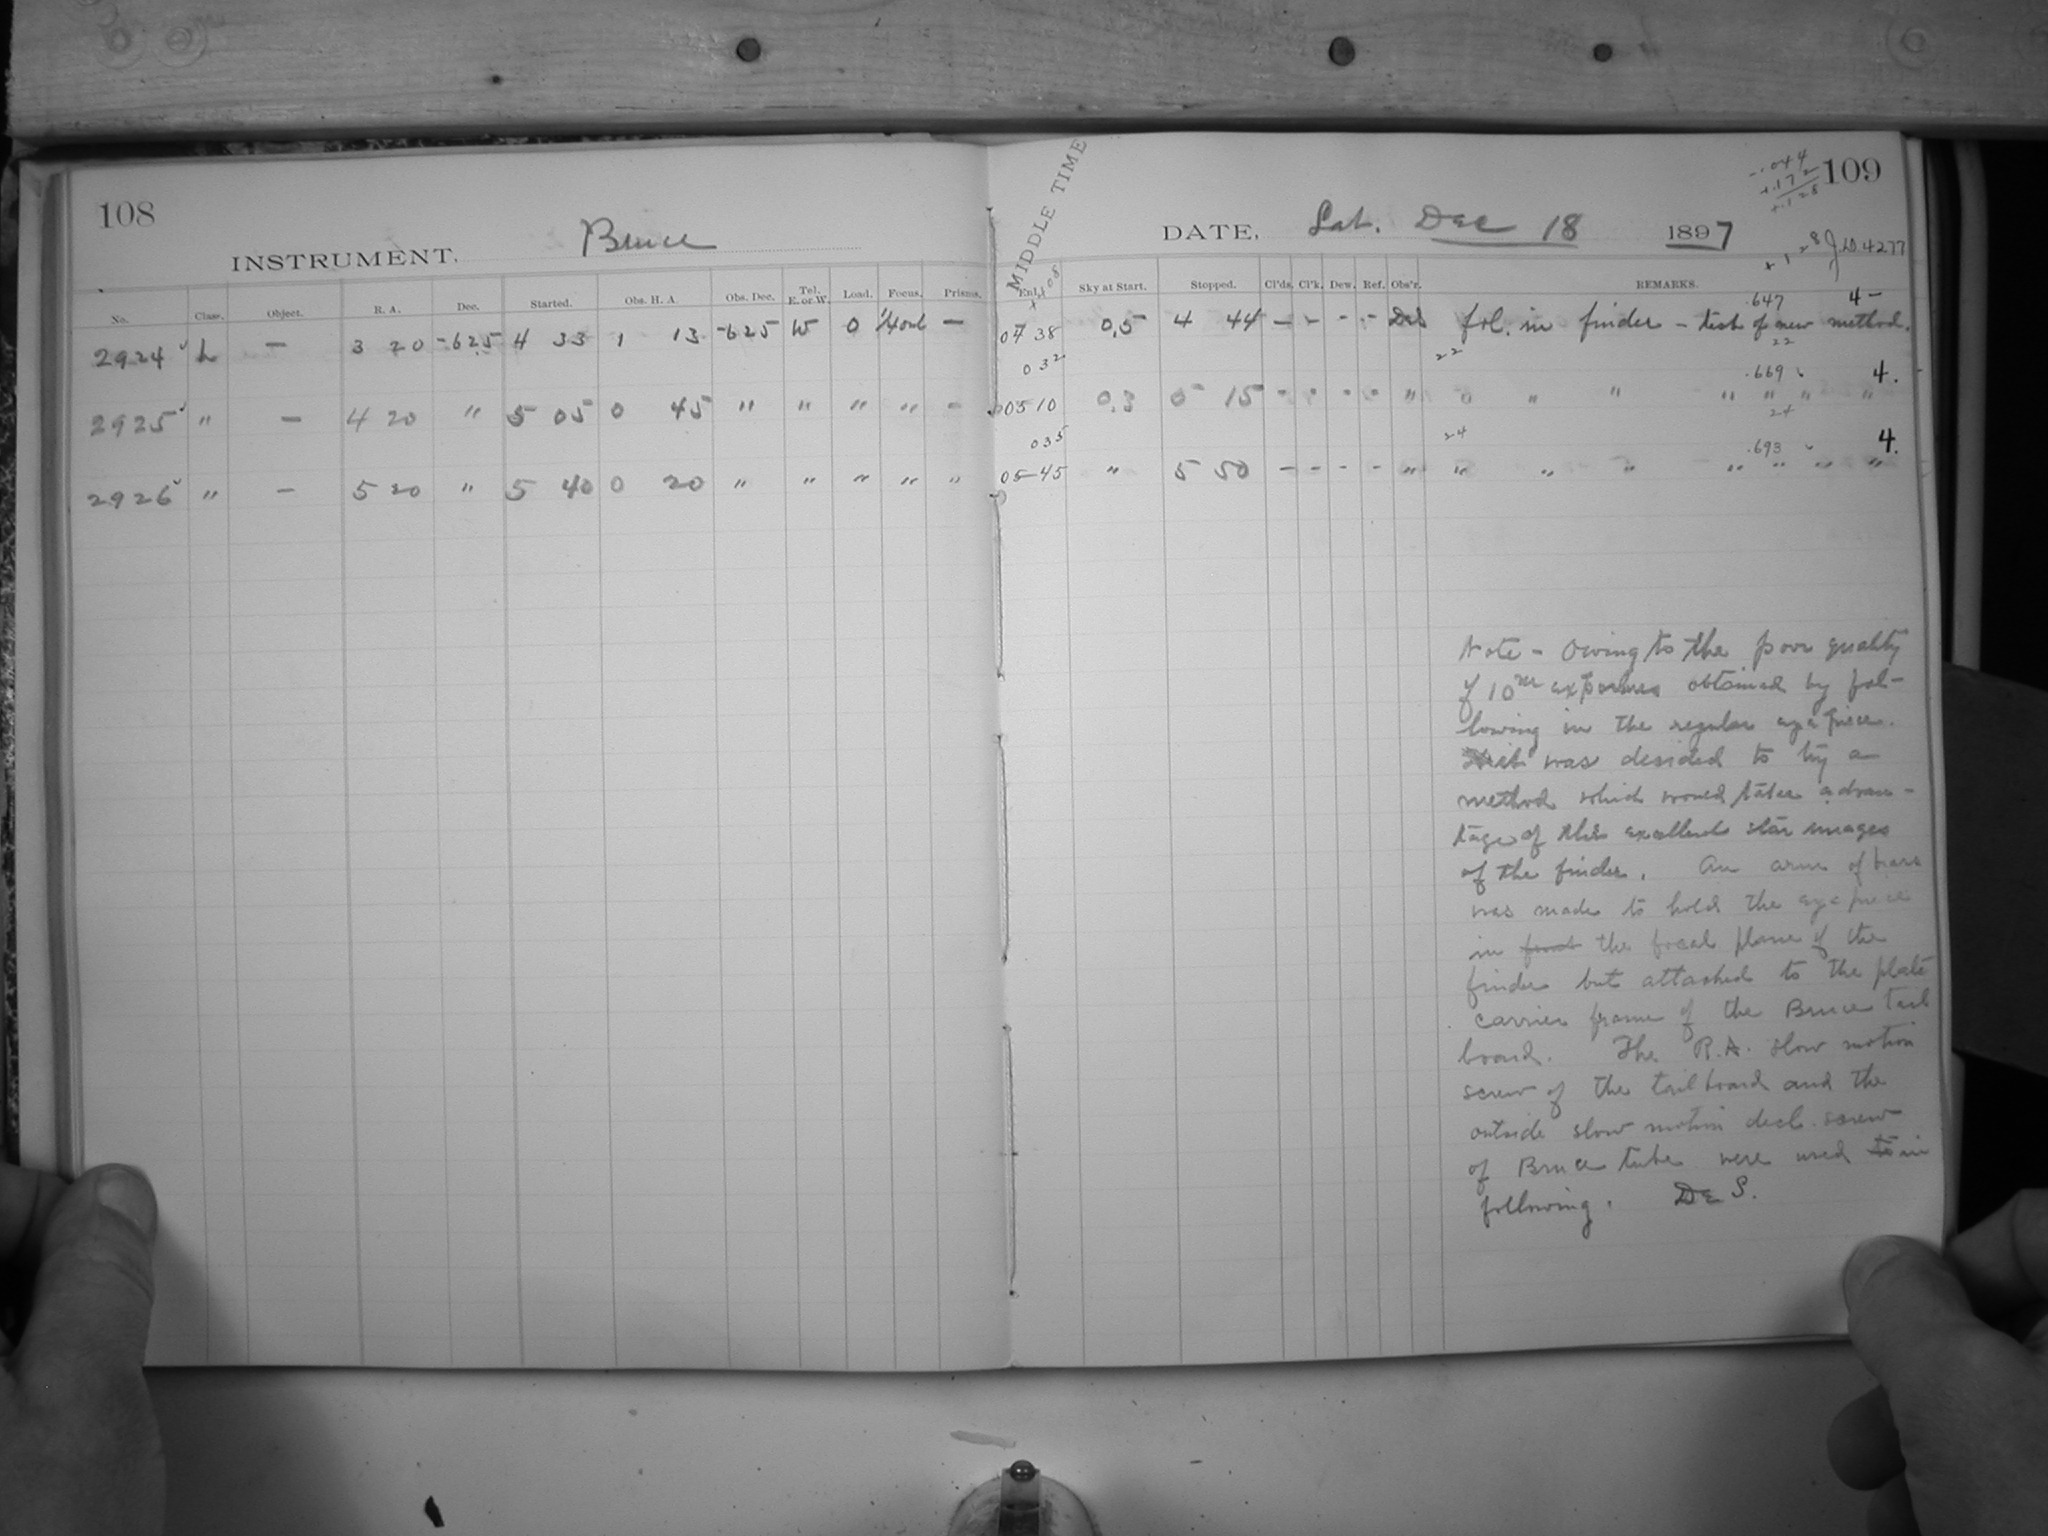 108
INSTRUMENT. Bruce
No. Class. Object. R. A. Dec. Started. Obs. H. A. Obs. Dec. Tel. E. or W. Load. Focus. Prisms.
2924 L – 3 20 -62.5 4 33 1 13 -62.5 W 0 –
2925 " – 4 20 " 5 05 0 45 " " " " –
2926 " – 5 20 " 5 40 0 20 " " " " "
MIDDLE TIME
109
-.044
+.172
+.128
DATE, Sat. Dec 18 1897
+128 J.D. 4277
Sky at Start. Stopped. Cl'ds. Cl'k. Dew. Ref. Obs'r. REMARKS.
.647 4-
07 38 0.5 4 44 – – – – DeS fol. in finder – test of new method.
032 22 22
.669 4.
05 10 0.3 5 15 – – – – " " " " " " "
24
035 24 .693 4.
05 45 " 5 50 – – – – " " " " " " " "
Note – Owing to the poor quality
of 10m exposures obtained by fol-
lowing in the regular eye piece.
it was desided to try a
method which would take advan-
tage of the excellent star images
of the finder. An arm of brass
was made to hold the eye piece
in the focal plane of the
finder but attached to the plate
carrier frame of the Bruce tail
board. The R.A. slow motion
screw of the tailboard and the
outside slow motion decl. screw
of Bruce tube were used to in
following. DeS.